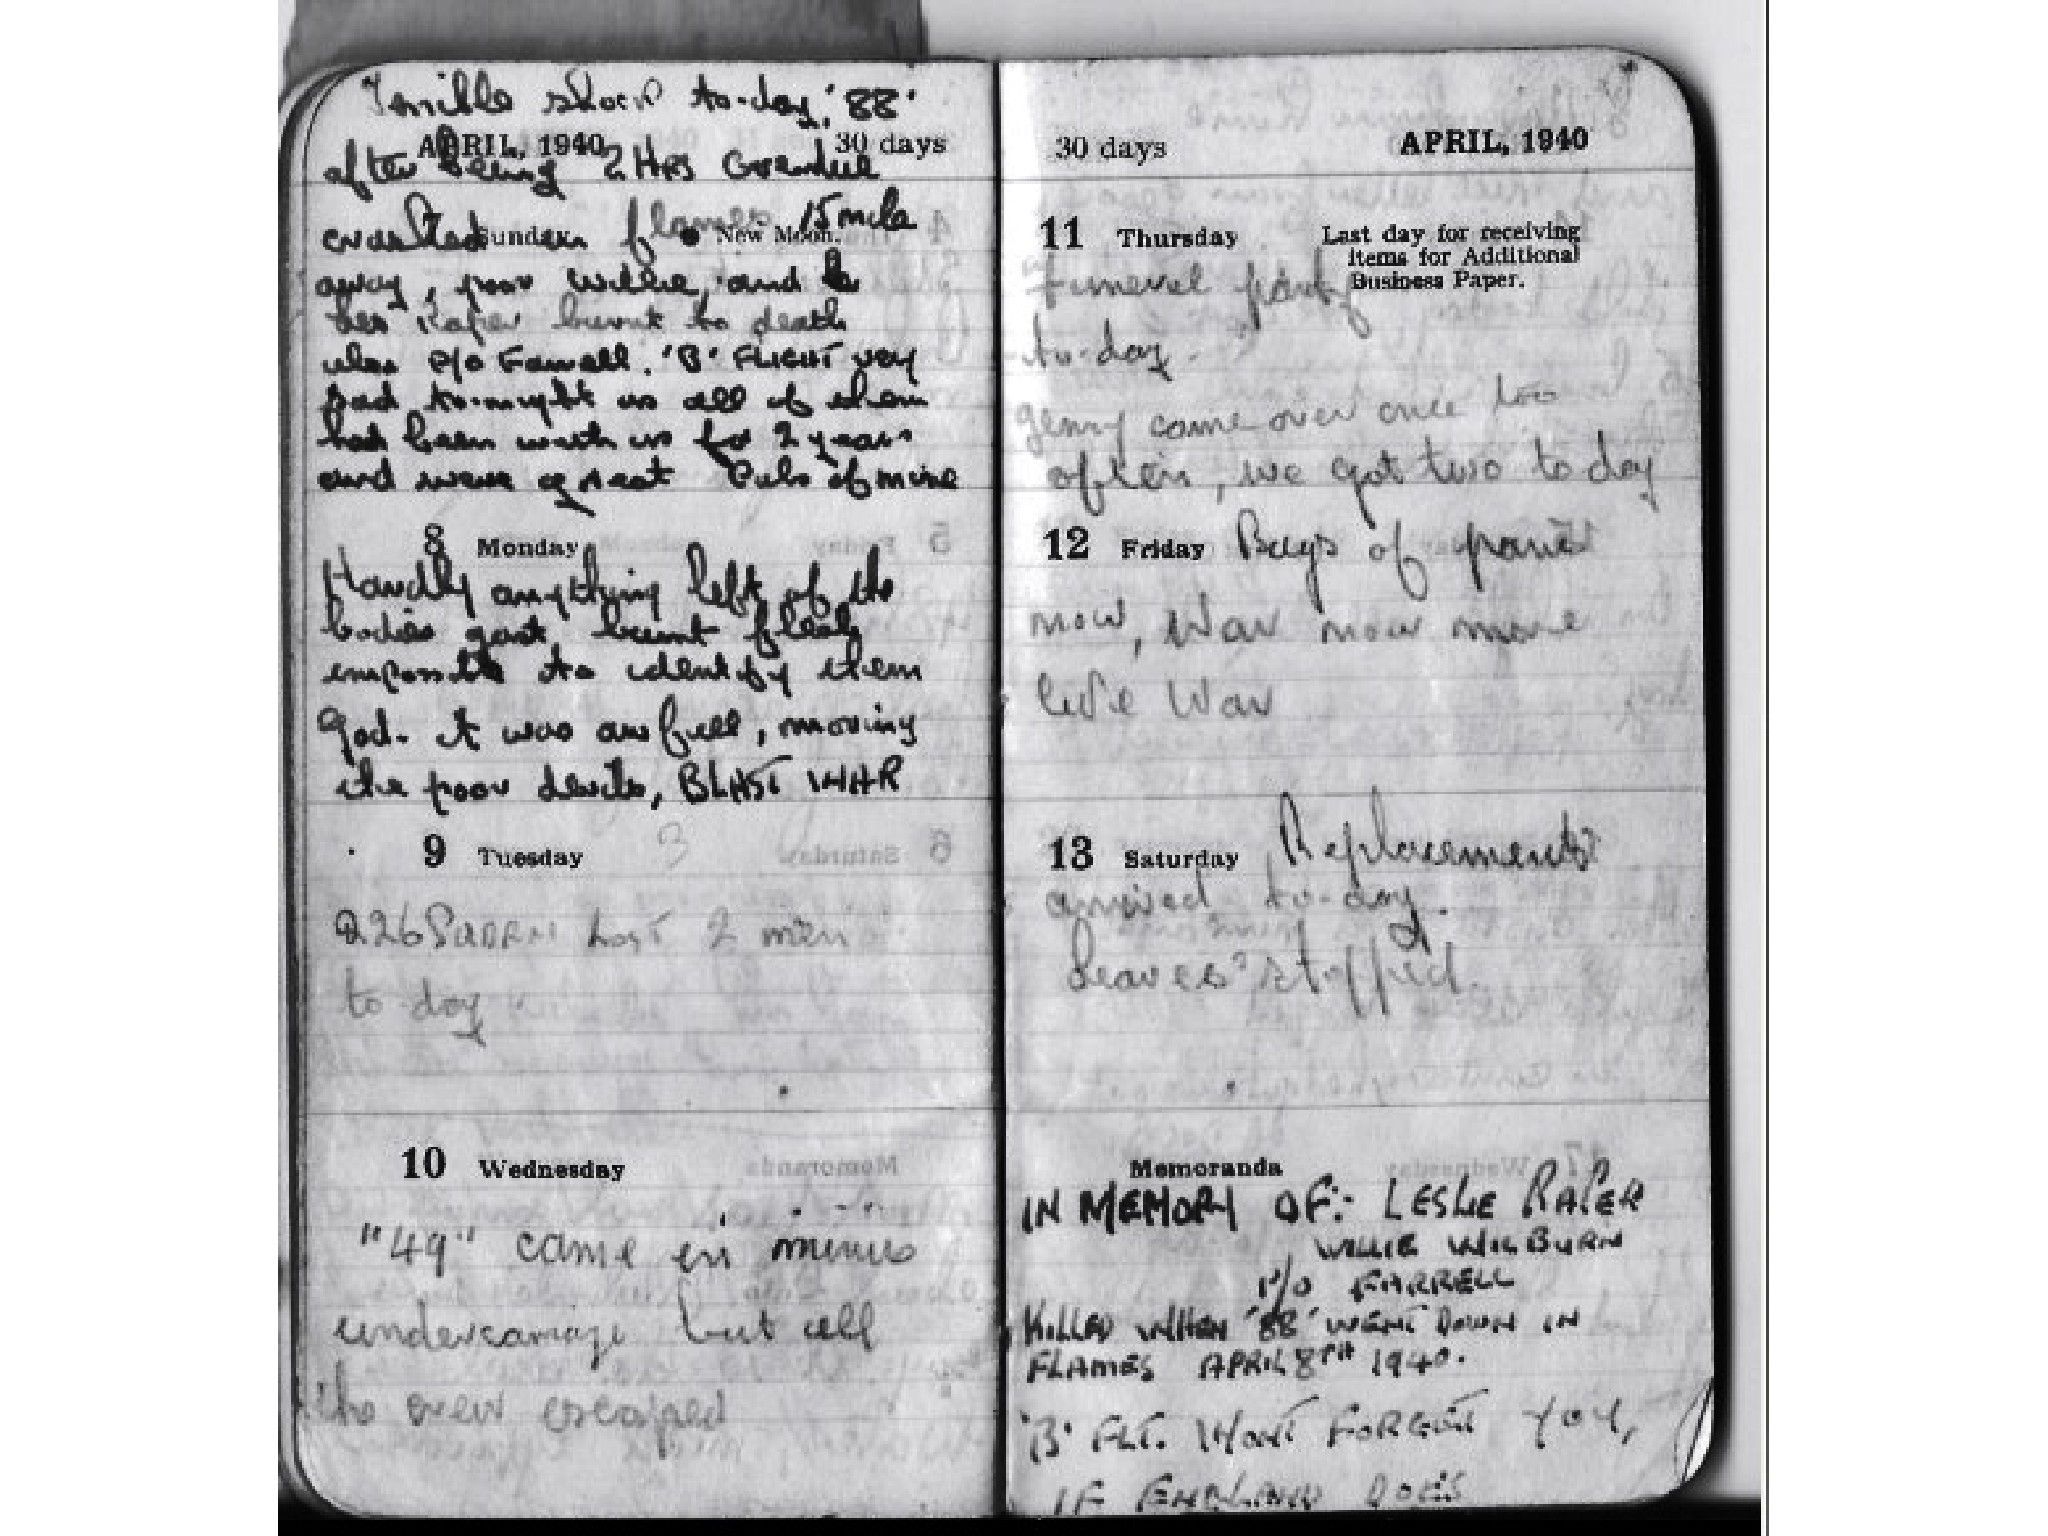 Terrible shock to-day, '88'
APRIL, 1940 30 days
after being 2 HRS Overdue
crashed in flames 15 mile
Sunday New Moon.
away, poor Willie and
Les Raper burnt to death
also P/O Farrell. 'B' FLIGHT very
sad to-night as all of them
had been with us for 2 years
and were great Pals of mine
8 Monday
Hardly anything left of the
bodies just burnt flesh
impossible to identify them
God. it was awfull, moving
the poor devils, BLAST WAR
9 Tuesday
226 SQDRN Lost 2 men
to day
10 Wednesday
"49" came in minus
undercarriage but all
the crew escaped
30 days APRIL, 1940
11 Thursday Last day for receiving
items for Additional
Business Paper.
Funeral party
to-day.
Jerry came over once too
often, we got two today
12 Friday Bags of panic
now, War now more
like War
13 Saturday Replacements
arrived to-day.
Leaves stopped.
Memoranda
IN MEMORY OF:- LESLIE RAPER
WILLIE WILBURN
P/O FARRELL
KILLED WHEN '88' WENT DOWN IN
FLAMES APRIL 8TH 1940.
'B' FLT. WONT FORGET YOU,
IF ENGLAND DOES